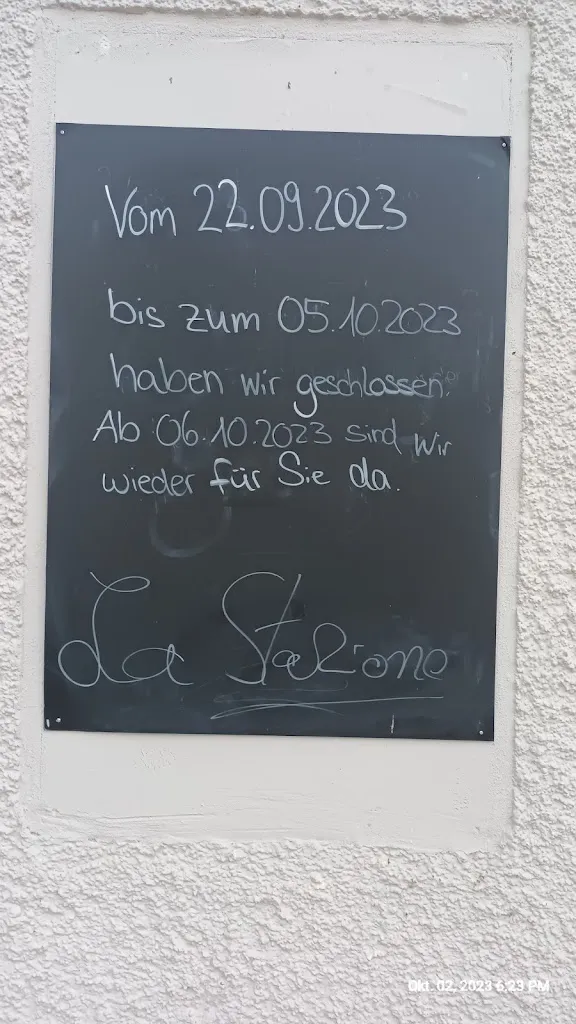 Vom 22.09.2023
bis zum 05.10.2023
haben wir geschlossen.
Ab 06.10.2023 sind wir
wieder für Sie da.
La Stazione
Okt. 02, 2023 6:23 PM